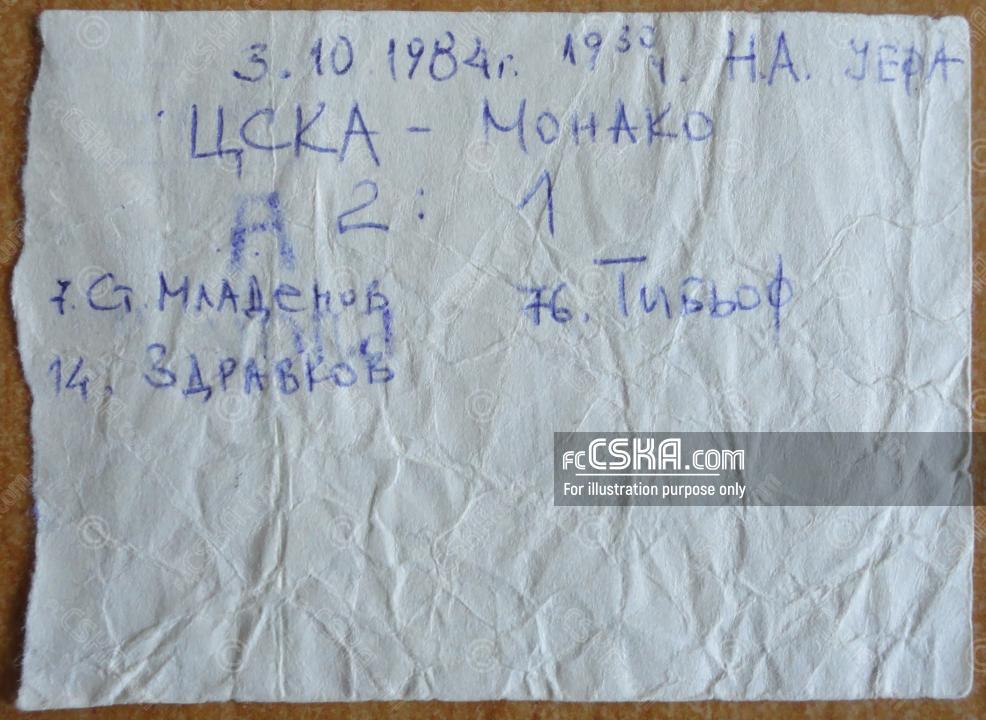 3.10 1984г. 19³⁰ ч. Н.А. УЕФА
ЦСКА - МОНАКО
А 2 : 1
7. Ст. МЛАДеНОВ 76. Тибьоф
14. ЗДРАВКОВ
fcCSKA.com
For illustration purpose only